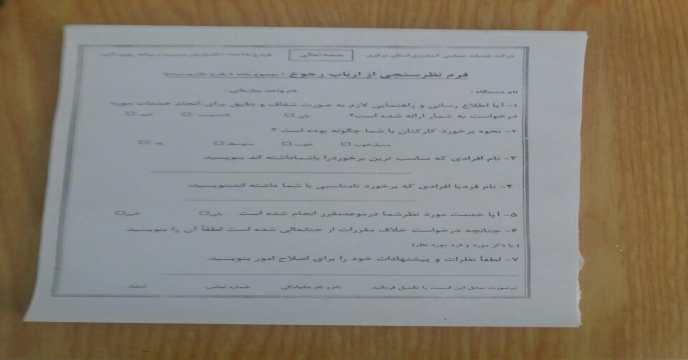 شرکت خدمات حمایتی کشاورزی استان مرکزی
بسمه تعالی
فرم نظرسنجی از ارباب رجوع
نام دستگاه: نام واحد سازمانی:
۱- آیا اطلاع رسانی و راهنمایی لازم به صورت شفاف و دقیق برای انجام خدمات مورد
درخواست به شمار ارائه شده است؟ بلی خیر
۲- نحوه برخورد کارکنان با شما چگونه بوده است ؟
بسیارخوب خوب متوسط بد
۳- نام افرادی که مناسب ترین برخوردرا باشماداشته اند بنویسید.
۴- نام فردیا افرادی که برخورد نامناسبی با شما داشته اندبنویسید.
۵- آیا خدمت مورد نظرشما درموعدمقرر انجام شده است بلی خیر
۶- چنانچه درخواست خلاف مقررات از جنابعالی شده است لطفاً آن را بنویسید.
( با ذکر مورد و فرد مورد نظر)
۷- لطفاً نظرات و پیشنهادات خود را برای اصلاح امور بنویسید.
درصورت تمایل این قسمت را تکمیل فرمائید. نام و نام خانوادگی شماره تماس امضاء